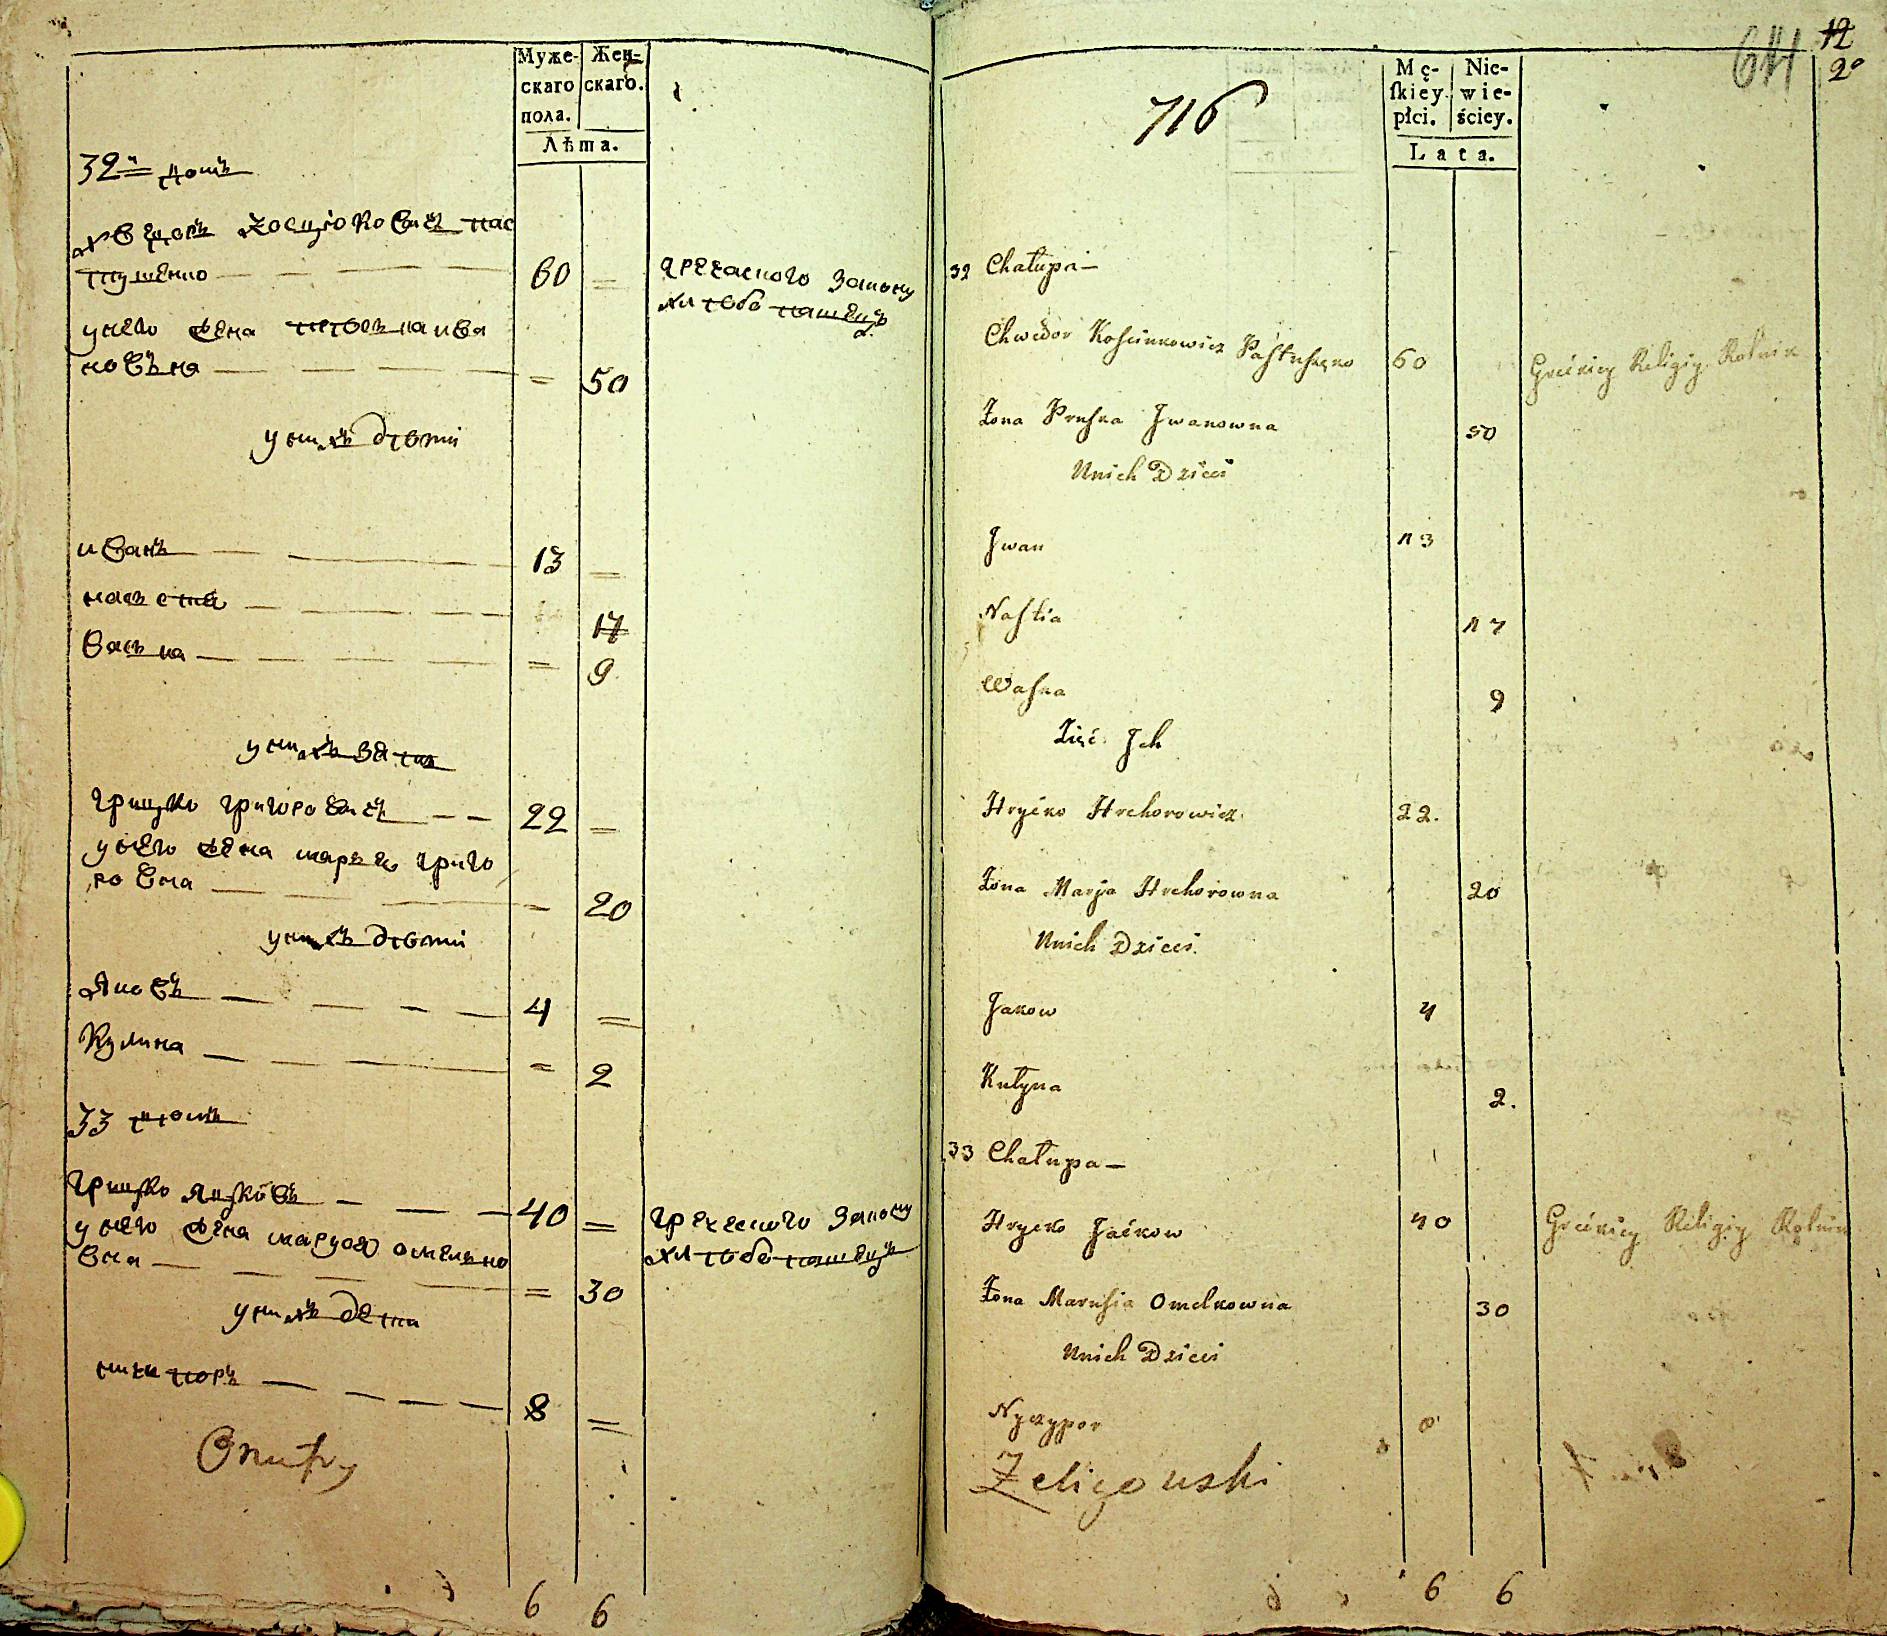 Муже-
скаго
пола.
Жен-
скаго.
Лѣта.
32й домъ
хведоръ косцюковичъ пас
тушенко 60 =
греческого закону
хлѣбо пашецъ
унего жена прѣська ива
новъна = 50
унихъ дѣти
иванъ 13 =
насътя 17
васъка = 9
унихъ зять
грицко григоровичъ 22 =
унего жена маръя григо
ровна = 20
унихъ дѣти
Яковъ 4 =
Кулина = 2
33 домъ
грицко яцковъ 40 =
греческого закону
хлѣбо пашецъ
унего жена маруся омелько
вна = 30
унихъ дети
ничипоръ 8 =
Onufry
6 6
641
12
20
716
Mę-
ſkiey
płci.
Nie-
wie-
ściey.
Lata.
32 Chałupa
Chwedor Kościukowicz Pastuszęko 60
Grećkiey Religiy Rolnik
Żona Pruska Jwanowna 50
Unich Dzieci
Jwan 13
Nastia 17
Waska 9
Zięć Jch
Hryćko Hrehorowicz 22.
Żona Marya Hrehorowna 20
Unich Dzieci
Jakow 4
Kulyna 2.
33 Chałupa
Hrycko Jaćkow 40
Grećkiey Religiy Rolnik
Żona Marusia Omelkowna 30
Unich Dzieci
Nyczypor 8
Zeligowski
6 6